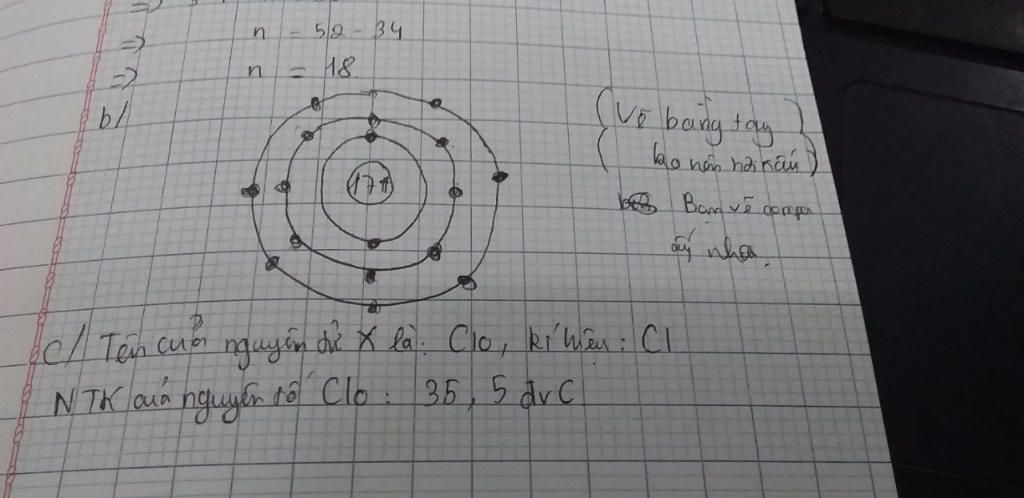 =>
=> n = 52 - 34
=> n = 18
b/
17+
(Vẽ bằng tay
hơi xấu)
Bạn vẽ compa
ấy nha.
c/ Tên của nguyên tử X là: Clo, kí hiệu: Cl
NTK của nguyên tố Clo: 35,5 đvC